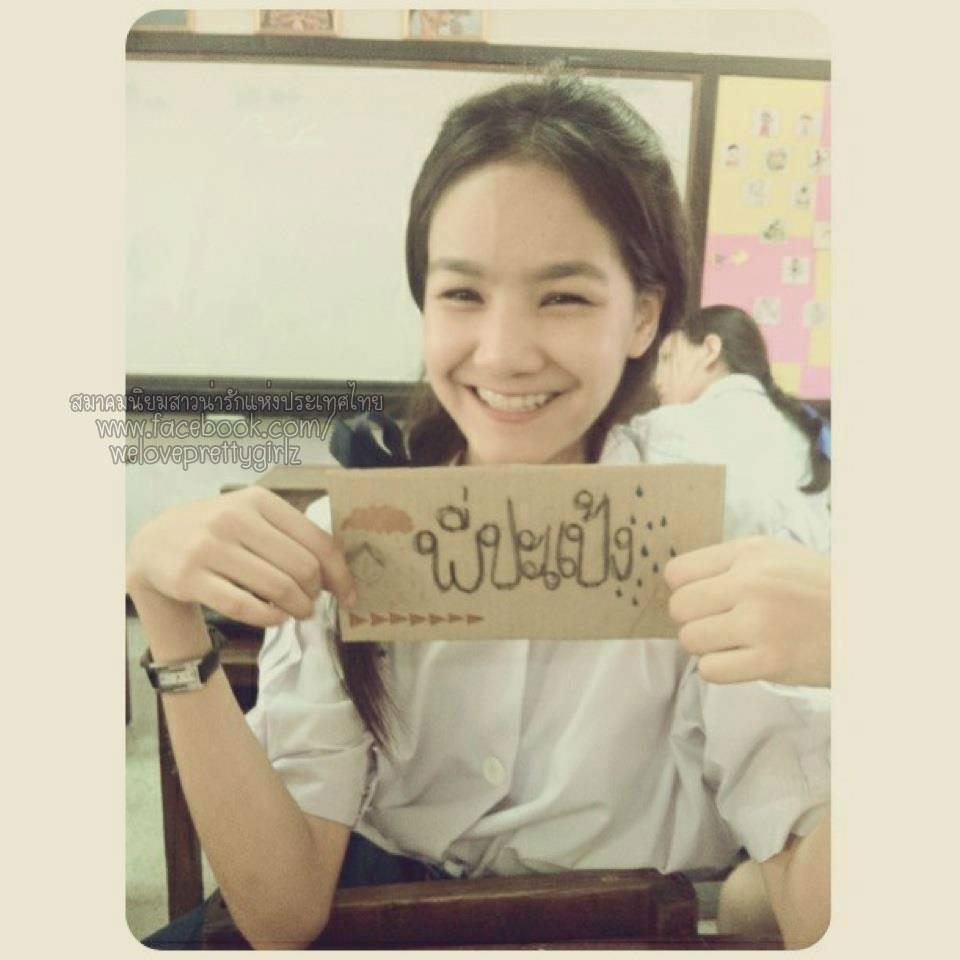 สมาคมนิยมสาวน่ารักแห่งประเทศไทย
www.facebook.com/
weloveprettygirlz
พี่ปะแป้ง